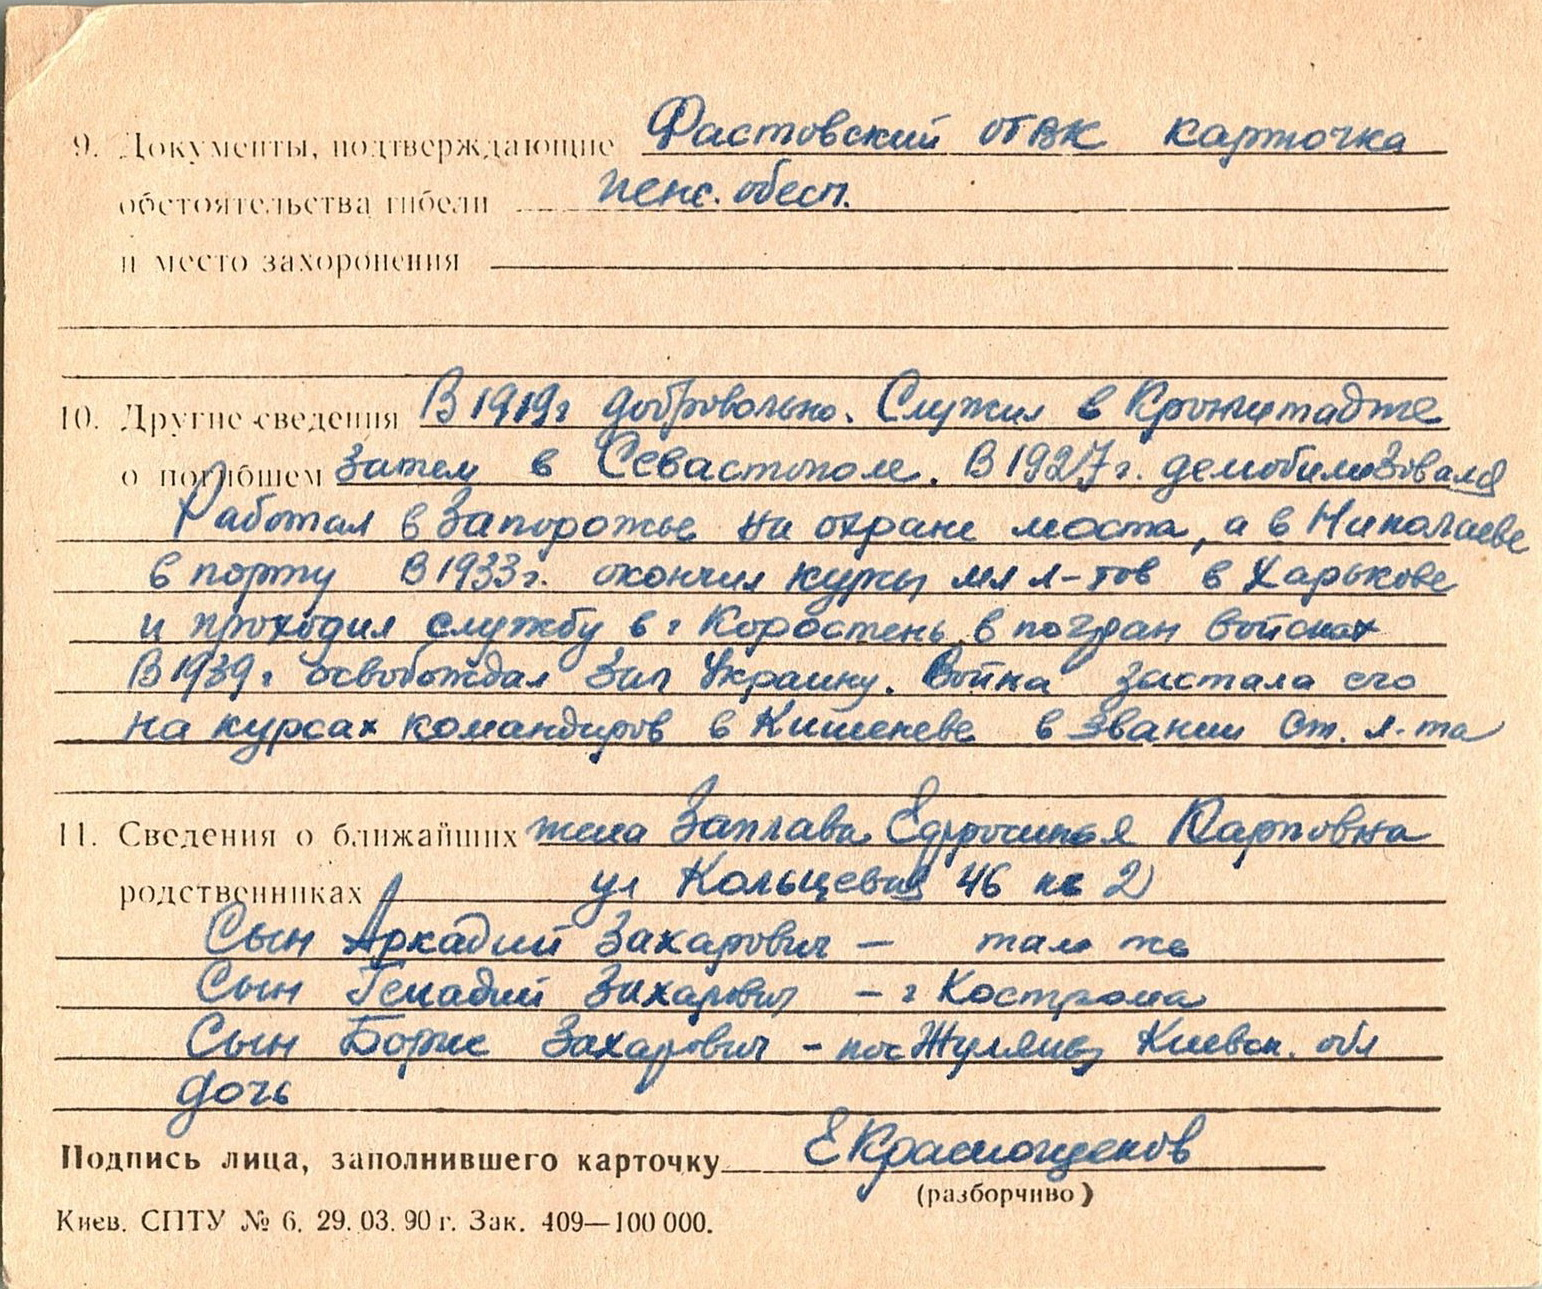 9. Документы, подтверждающие Фастовский ОГВК карточка
обстоятельства гибели пенс. обесп.
и место захоронения
10. Другие сведения В 1919г добровольно. Служил в Кронштадте
о погибшем затем в Севастополе. В 1927г. демобилизовался
Работал в Запорожье на охране моста, а в Николаеве
в порту В 1933г. окончил курсы мл л-тов в Харькове
и проходил службу в г Коростень в погран войсках
В 1939г освобождал Зап Украину. Война застала его
на курсах командиров в Кишеневе в звании ст. л-та
11. Сведения о ближайших жена Заплава Ефросиния Карповна
родственниках ул Кольцевая 46 кв 2
Сын Аркадий Захарович – там же
Сын Генадий Захарович – г Кострома
Сын Борис Захарович – пос Жуляны Киевск. обл
дочь
Подпись лица, заполнившего карточку ЕКраснощеков
(разборчиво)
Киев. СПТУ № 6. 29. 03. 90 г. Зак. 409—100 000.